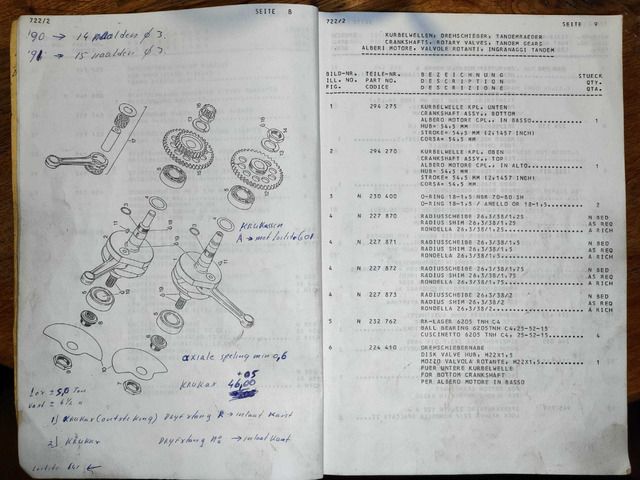 722/2 SEITE 8
'90 → 14 naalden ø 3.
'91 → 15 naalden ø 3.
KRUKASSEN
A → met loctite 601
axiale speling min 0,6
+05
KRUKAS 46,00
1) KRUKAS → inlaat
2) KRUKAS → inlaat
loctite
722/2 SEITE 9
KURBELWELLEN, DREHSCHIEBER, TANDEMRAEDER
CRANKSHAFTS, ROTARY VALVES, TANDEM GEARS
ALBERI MOTORE, VALVOLE ROTANTI, INGRANAGGI TANDEM
BILD-NR. TEILE-NR. B E Z E I C H N U N G STUECK
ILL. NO. PART NO. D E S C R I P T I O N QTY.
FIG. CODICE D E S C R I Z I O N E QTA.
1 294 275 KURBELWELLE KPL. UNTEN
CRANKSHAFT ASSY., BOTTOM
ALBERO MOTORE CPL., IN BASSO............ 1
HUB= 54,5 MM
STROKE= 54,5 MM (2,1457 INCH)
CORSA= 54,5 MM
2 294 270 KURBELWELLE KPL. OBEN
CRANKSHAFT ASSY., TOP
ALBERO MOTORE CPL., IN ALTO............. 1
HUB= 54,5 MM
STROKE= 54,5 MM (2,1457 INCH)
CORSA= 54,5 MM
3 N 230 400 O-RING 18-1,5 NBR 70-80 SH
O-RING 18-1,5 / ANELLO OR 18-1,5........ 2
4 N 227 870 RADIUSSCHEIBE 26,3/38/1,25 N BED
RADIUS SHIM 26,3/38/1,25 AS REQ
RONDELLA 26,3/38/1,25................... A RICH
4 N 227 871 RADIUSSCHEIBE 26,3/38/1,5 N BED
RADIUS SHIM 26,3/38/1,5 AS REQ
RONDELLA 26,3/38/1,5.................... A RICH
4 N 227 872 RADIUSSCHEIBE 26,3/38/1,75 N BED
RADIUS SHIM 26,3/38/1,75 AS REQ
RONDELLA 26,3/38/1,75................... A RICH
4 N 227 873 RADIUSSCHEIBE 26,3/38/2 N BED
RADIUS SHIM 26,3/38/2 AS REQ
RONDELLA 26,3/38/2...................... A RICH
5 N 232 762 RK-LAGER 6205 TNH C4
BALL BEARING 6205TNH C4,25-52-15
CUSCINETTO 6205 TNH C4, 25-52-15........ 4
6 224 410 DREHSCHIEBERNABE
DISK VALVE HUB, M22X1,5
MOZZO VALVOLA ROTANTE, M22X1,5.......... 1
FUER UNTERE KURBELWELLE
FOR BOTTOM CRANKSHAFT
PER ALBERO MOTORE IN BASSO